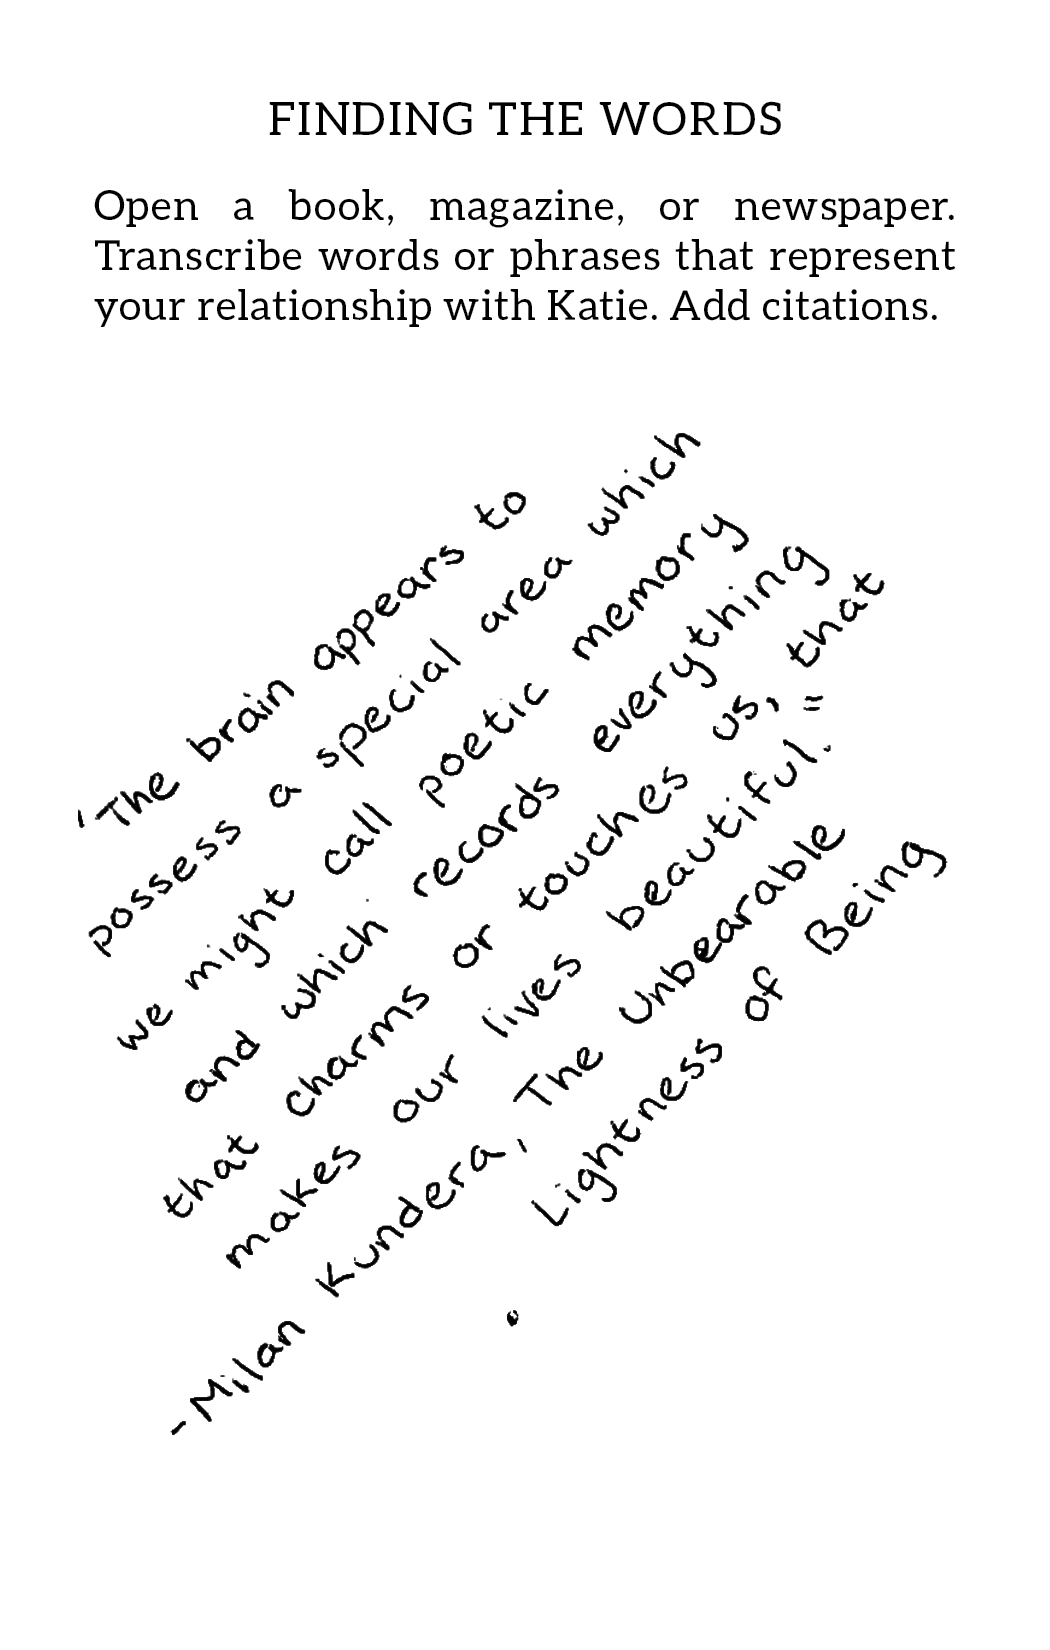 FINDING THE WORDS
Open a book, magazine, or newspaper.
Transcribe words or phrases that represent
your relationship with Katie. Add citations.
'The brain appears to
possess a special area which
we might call poetic memory
and which records everything
that charms or touches us, that
makes our lives beautiful."
-Milan Kundera, The Unbearable
Lightness of Being